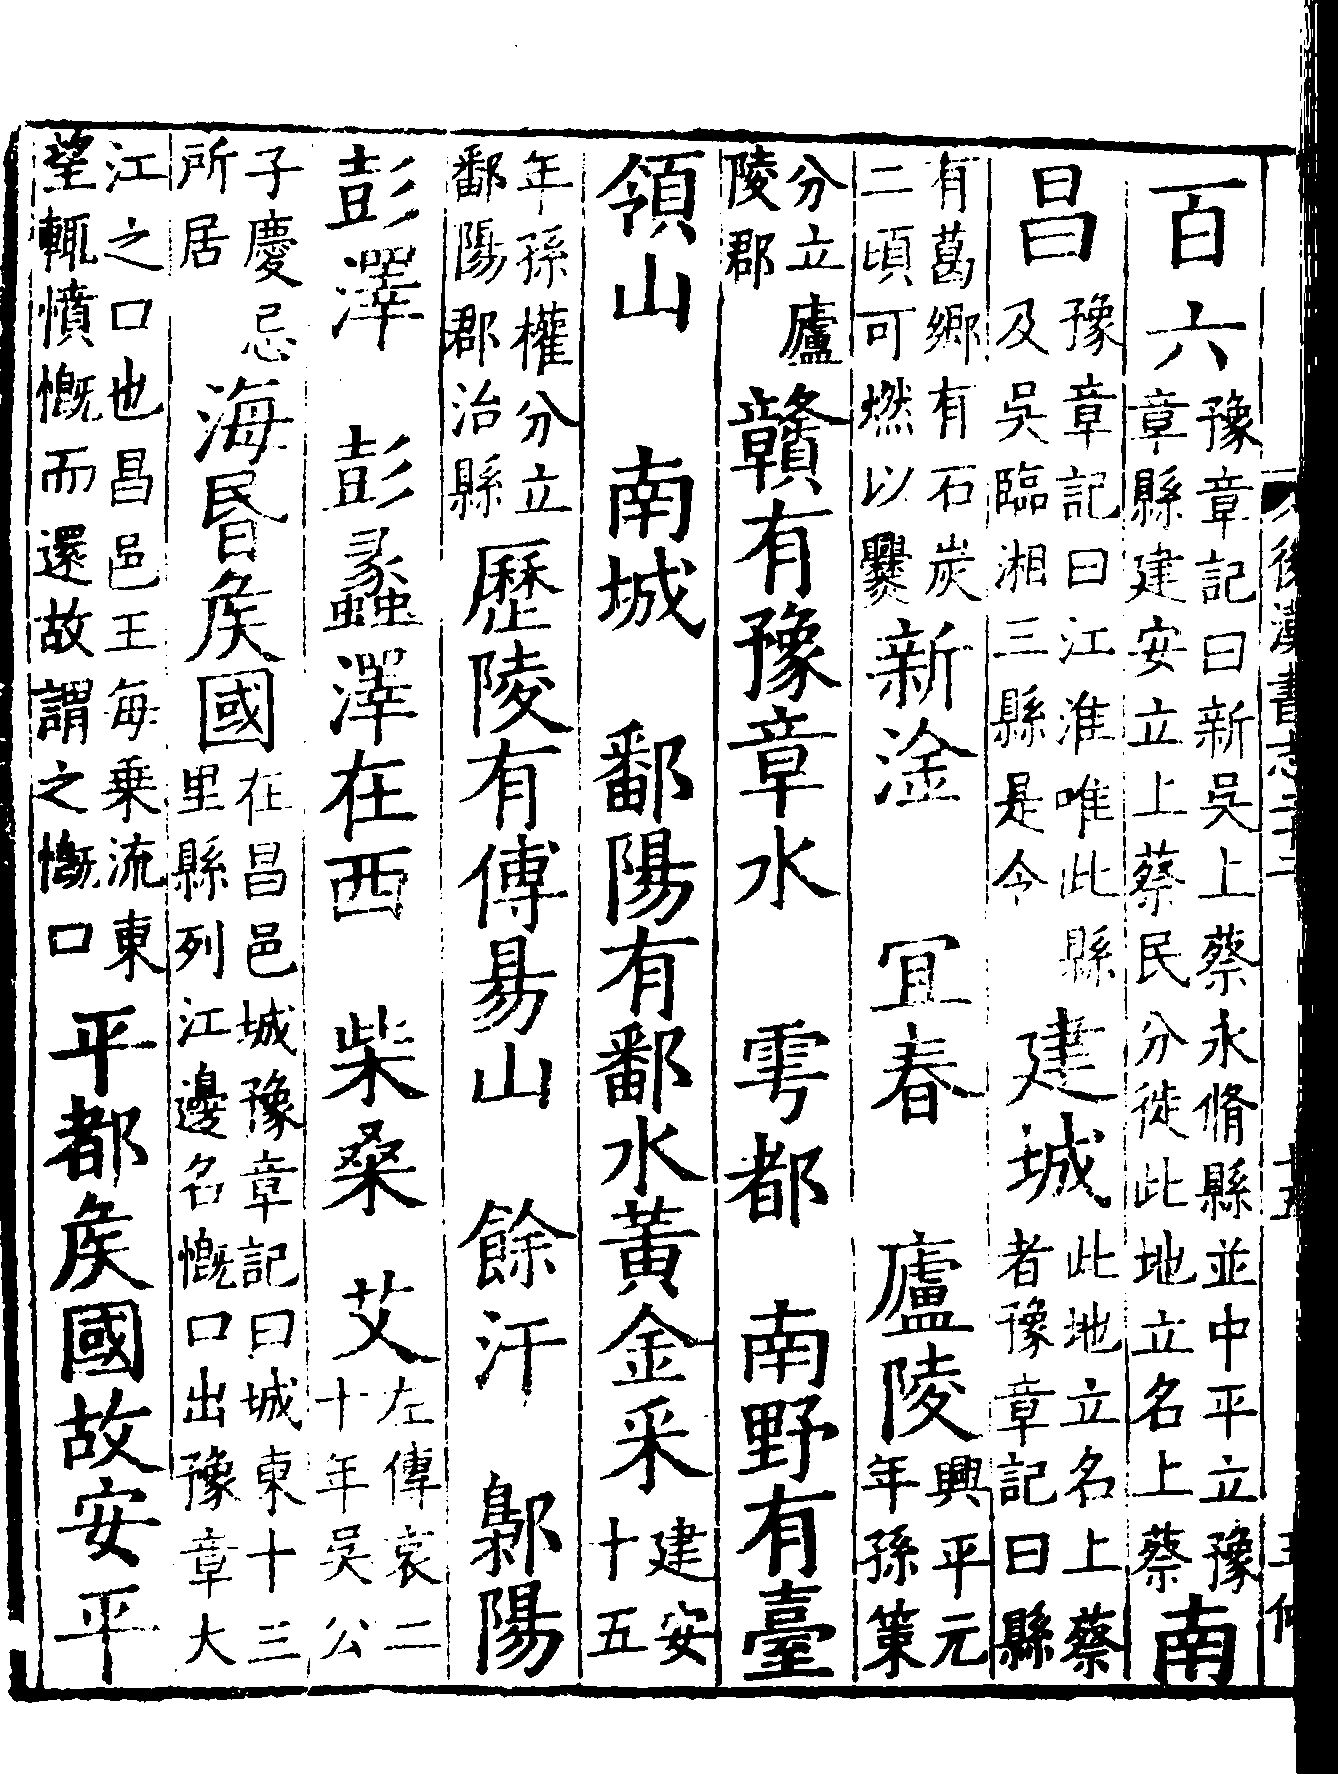 百六豫章記曰新吳上蔡永脩縣並中平立豫章縣建安立上蔡民分徙此地立名上蔡南
昌豫章記曰江淮唯此縣及吳臨湘三縣是今建城此地立名上蔡者豫章記曰縣
有葛鄉有石炭二頃可燃以爨新淦 宜春 廬陵興平元年孫策
分立廬陵郡贛有豫章水 雩都 南野有臺
領山 南城 鄱陽有鄱水黃金采建安十五
年孫權分立鄱陽郡治縣歷陵有傅昜山 餘汗 鄡陽
彭澤 彭蠡澤在西 柴桑 艾左傳哀二十年吳公
子慶忌所居海昬侯國在昌邑城豫章記曰城東十三里縣列江邊名慨口出豫章大
江之口也昌邑王每乗流東望輒憤慨而還故謂之慨口平都侯國故安平